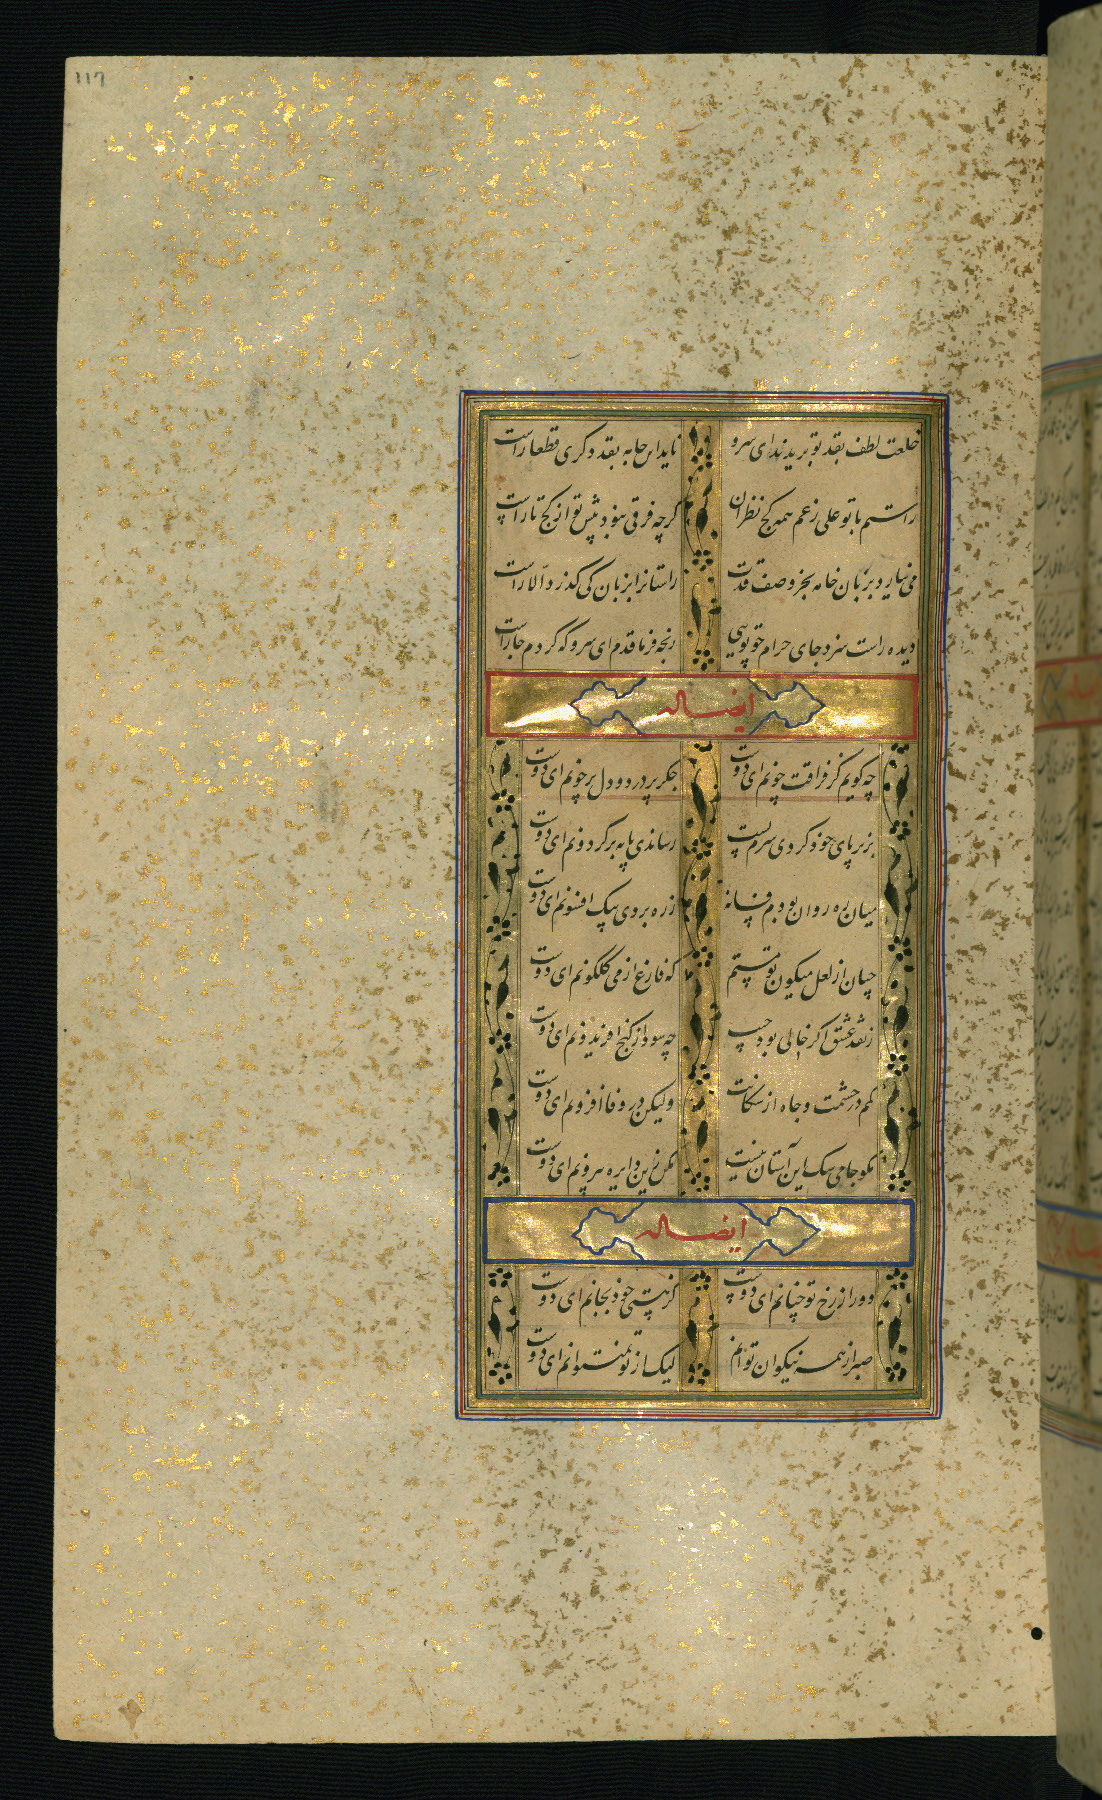 117
خلعت لطف بقد تو بریدند ای سرو ناید این جامه بقد دگری قطعا راست
راستیم با تو علی زعم همه کج نظران گرچه فرقی نبود پیش تو از کج تا راست
می نیارد بزبان خامه بجز وصف قدت راستانرا بزبان کی گذرد الا راست
دیده راست سزد جای خرام چو تویی رنجه فرما قدم ای سرو که کردم جا راست
ایضا له
چه گویم کز فراقت چونم ای دوست جگر پر درد و دل پر خونم ای دوست
بزیر پای خود کردی سرم پست رساندی پایه بر گردونم ای دوست
میان ره روان بودم فسانه ز ره بردی بیک افسونم ای دوست
چنان از لعل میگون تو مستم که فارغ از می گلگونم ای دوست
ز نقد عشق اگر خالی بود جیب چه سود از گنج افریدونم ای دوست
کم در حشمت و جاه از سگانت ولیکن در وفا افزونم ای دوست
مگو جامی سگ این آستان نیست مکن زین دایره بیرونم ای دوست
ایضا له
دور از رخ تو چنانم ای دوست کز هستی خود بجانم ای دوست
صبر از همه نیکوان توانم لیک از تو نمیتوانم ای دوست